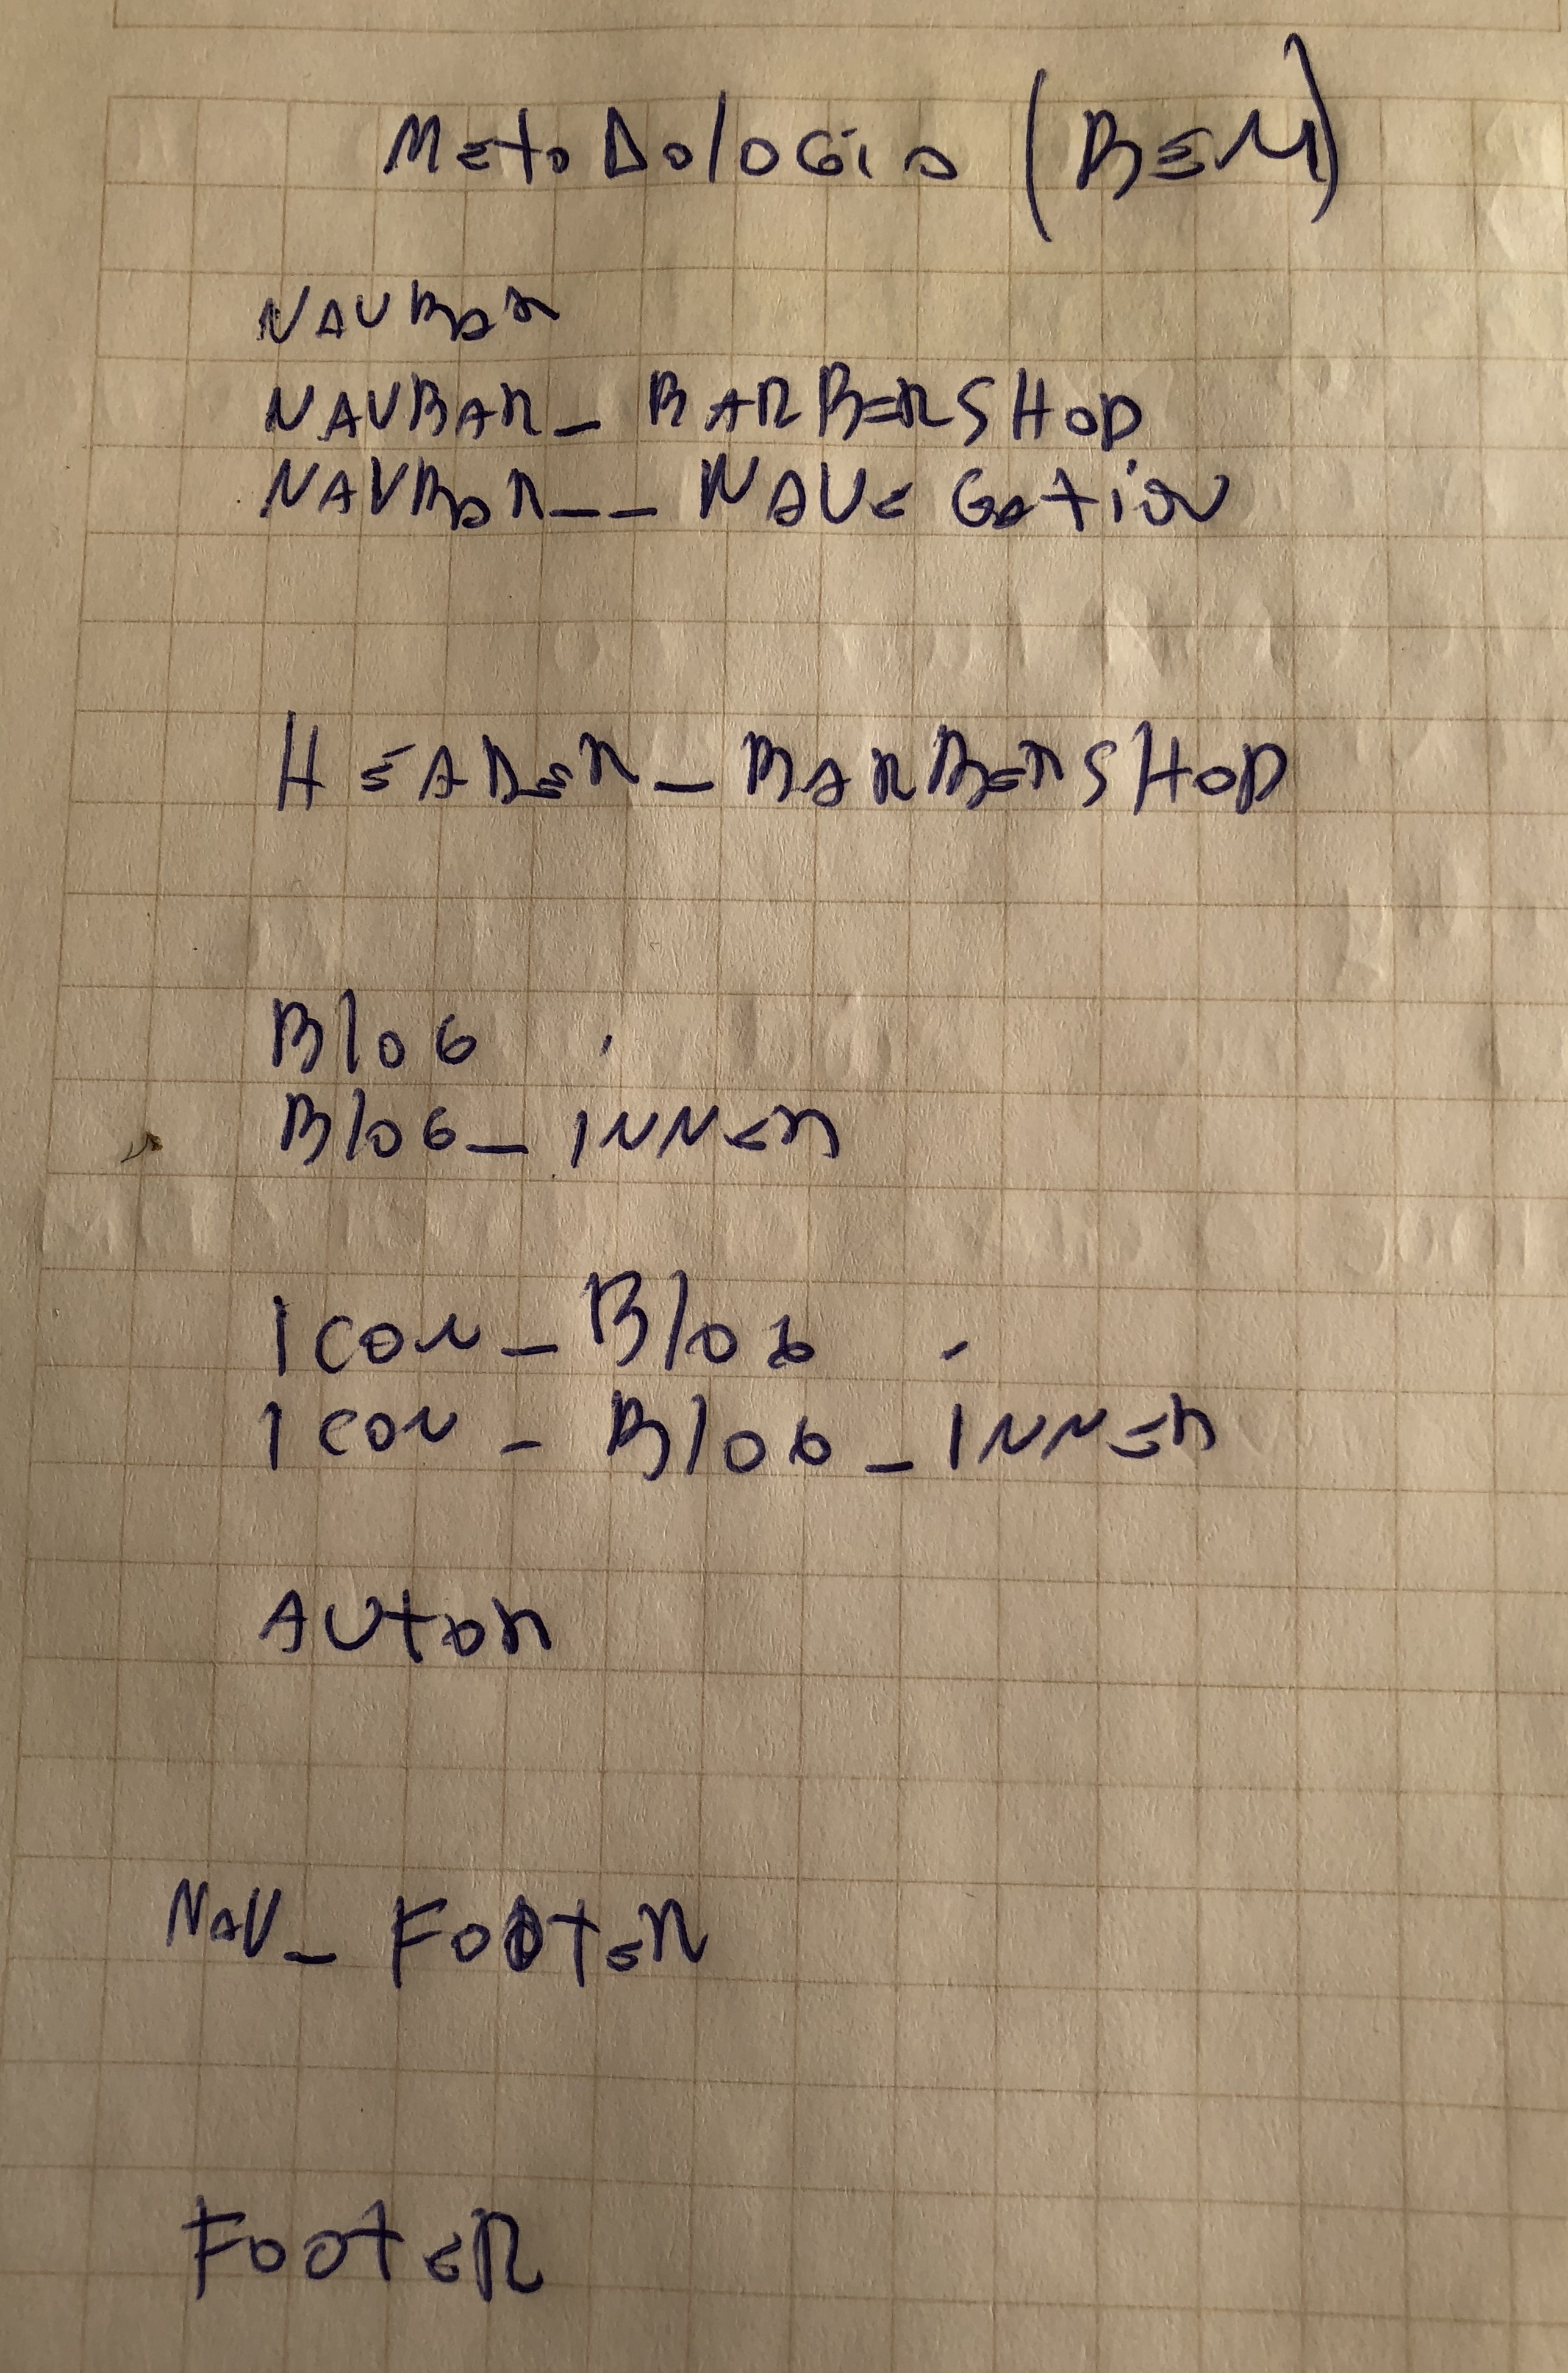 Metodologia (BEM)
NAVBAR
NAVBAR_ BARBERSHOP
NAVBAR__ NAVEGATION
HEADER_BARBERSHOP
Blog
Blog_ INNER
Icon_Blog
Icon_Blog_INNER
Autor
NAV_FOOTER
FOOTER